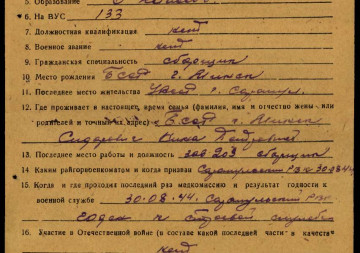 5. Образование
6. На ВУС 133
7. Должностная квалификация нет
8. Военное звание нет
9. Гражданская специальность сборщик
10. Место рождения БССР г. Минск
11. Последнее место жительства УАССР г. Сарапул
12. Где проживает в настоящее время семья (фамилия, имя и отчество жены или
родителей и точный их адрес) БССР г. Минск
Сидорович Нина Петровна
13. Последнее место работы и должность зав 203 сборщик
14. Каким райгорвоенкоматом и когда призван Сарапульский РВК 30.08.44
15. Когда и где проходил последний раз медкомиссию и результат годности к
военской службе 30.08.44. Сарапульский РВК
годен к строевой службе
16. Участие в Отечественной войне (в составе какой последней части и качестве
нет